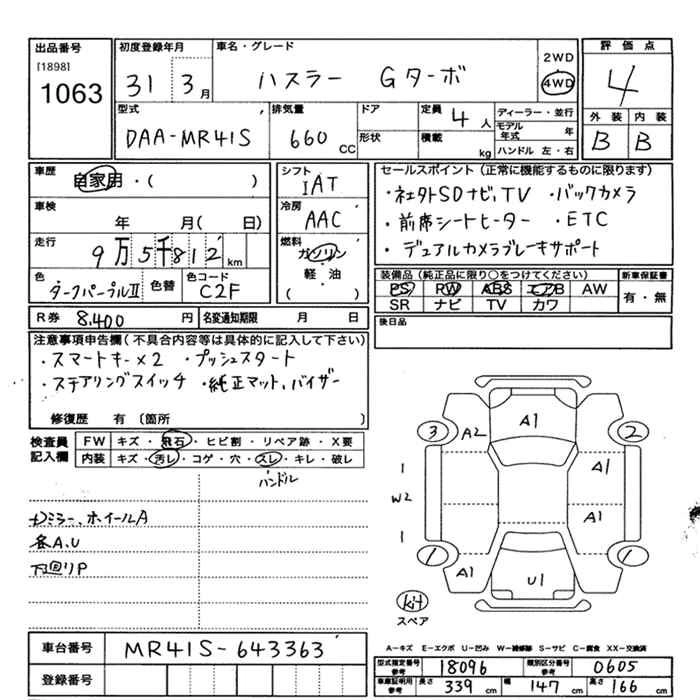 出品番号
[1898]
1063
初度登録年月
31 3月
車名・グレード
ハスラー Gターボ
2WD
4WD
評価点
4
外装 内装
B B
型式
DAA-MR41S
排気量
660 CC
ドア
形状
定員 4人
積載 kg
ディーラー・並行
モデル年式 年
ハンドル 左・右
車歴
自家用・( )
車検
年 月( 日)
走行
9万5千812 km
色
ダークパープルⅡ
色替
色コード
C2F
シフト
IAT
冷房
AAC
燃料
ガソリン
軽・油
( )
セールスポイント(正常に機能するものに限ります)
・社外SDナビ、TV ・バックカメラ
・前席シートヒーター ・ETC
・デュアルカメラブレーキサポート
装備品(純正品に限り○をつけてください)
PS PW ABS エアB AW
SR ナビ TV カワ
新車保証書
有・無
R券 8,400 円
名変通知期限 月 日
後日品
注意事項申告欄(不具合内容等は具体的に記入して下さい)
・スマートキー×2 ・プッシュスタート
・ステアリングスイッチ ・純正マット、バイザー
修復歴 有〔箇所 〕
検査員記入欄
FW キズ・飛石・ヒビ割・リペア跡・X要
内装 キズ・汚レ・コゲ・穴・スレ・キレ・破レ
ハンドル
ドミラー、ホイールA
各A、U
下廻りP
3 A2 A1 2
1 A1
W2
A1
1
1 A1 U1 1
kit
スペア
A-キズ E-エクボ U-凹み W-補修跡 S-サビ C-腐食 XX-交換済
車台番号 MR41S-643363
登録番号
型式指定番号 参考 18096
類別区分番号 参考 0605
車庫証明用 参考 長さ 339 cm 幅 147 cm 高さ 166 cm